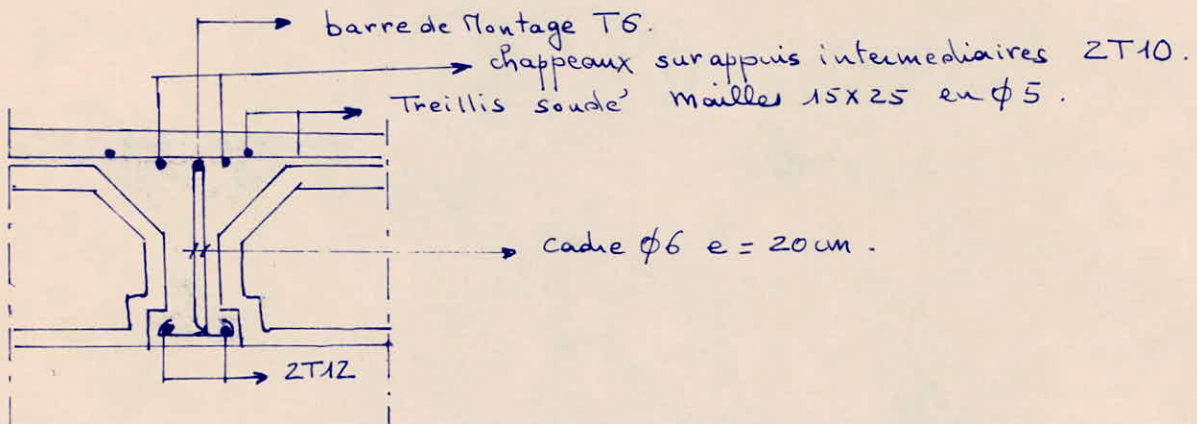 barre de Montage T6.
chappeaux sur appuis intermediaires 2T10.
Treillis soudé mailles 15x25 en ϕ5.
cadre ϕ6 e = 20 cm.
2T12